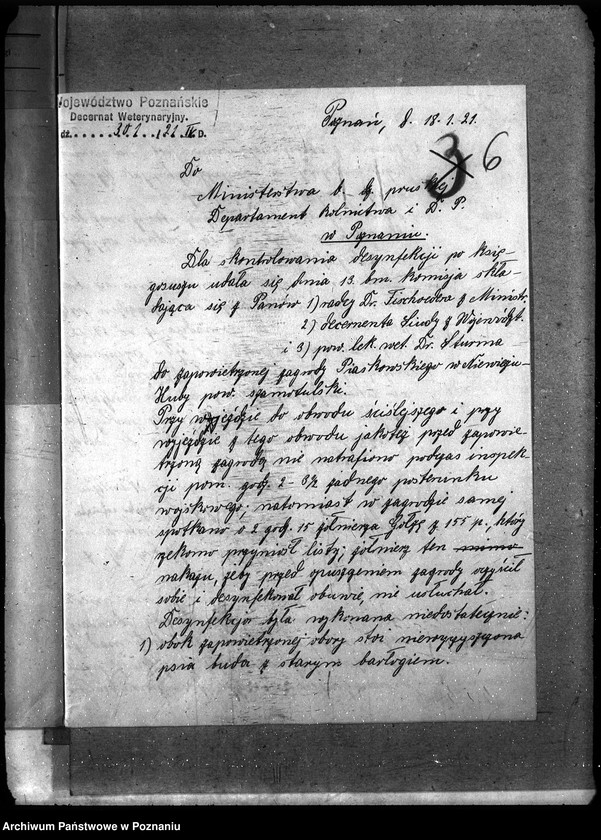 Województwo Poznańskie
Decernat Weterynaryjny.
dz. 30.1. / 21 IV D.
Poznań, d. 18.1.21.
3 6
Do
Ministerstwa b. dz. pruskiej
Departament Rolnictwa i D. P.
w Poznaniu.
Dla skontrolowania desynfekcji po księ-
gosuszu udała się dnia 13. bm. komisja skła-
dająca się z Panów 1) radcy Dr. z Ministr.
2) decernenta z Województ.
i 3) pow. lek. wet. Dr. Sturma
do zapowietrzonej zagrody Piaskowskiego w
Huby pow. szamotulski.
Przy wjeździe do obwodu ściślejszego i przy
wyjeździe z tego obwodu jakoteż przed zapowie-
trzoną zagrodą nie natrafiono podczas inspek-
cji pom. godz. 2 - 3½ żadnego posterunku
wojskowego; natomiast w zagrodzie samej
spotkano o 2 godz. 15 żołnierza z 155 p., który
rzekomo przyniósł listy; żołnierz ten mimo
nakazu, żeby przed opuszczeniem zagrody oczyścił
sobie i desynfekował obuwie, nie usłuchał.
Desynfekcja była wykonana niedostatecznie:
1) obok zapowietrzonej obory stoi niewyczyszczona
psia buda z starym barłogiem.
Archiwum Państwowe w Poznaniu